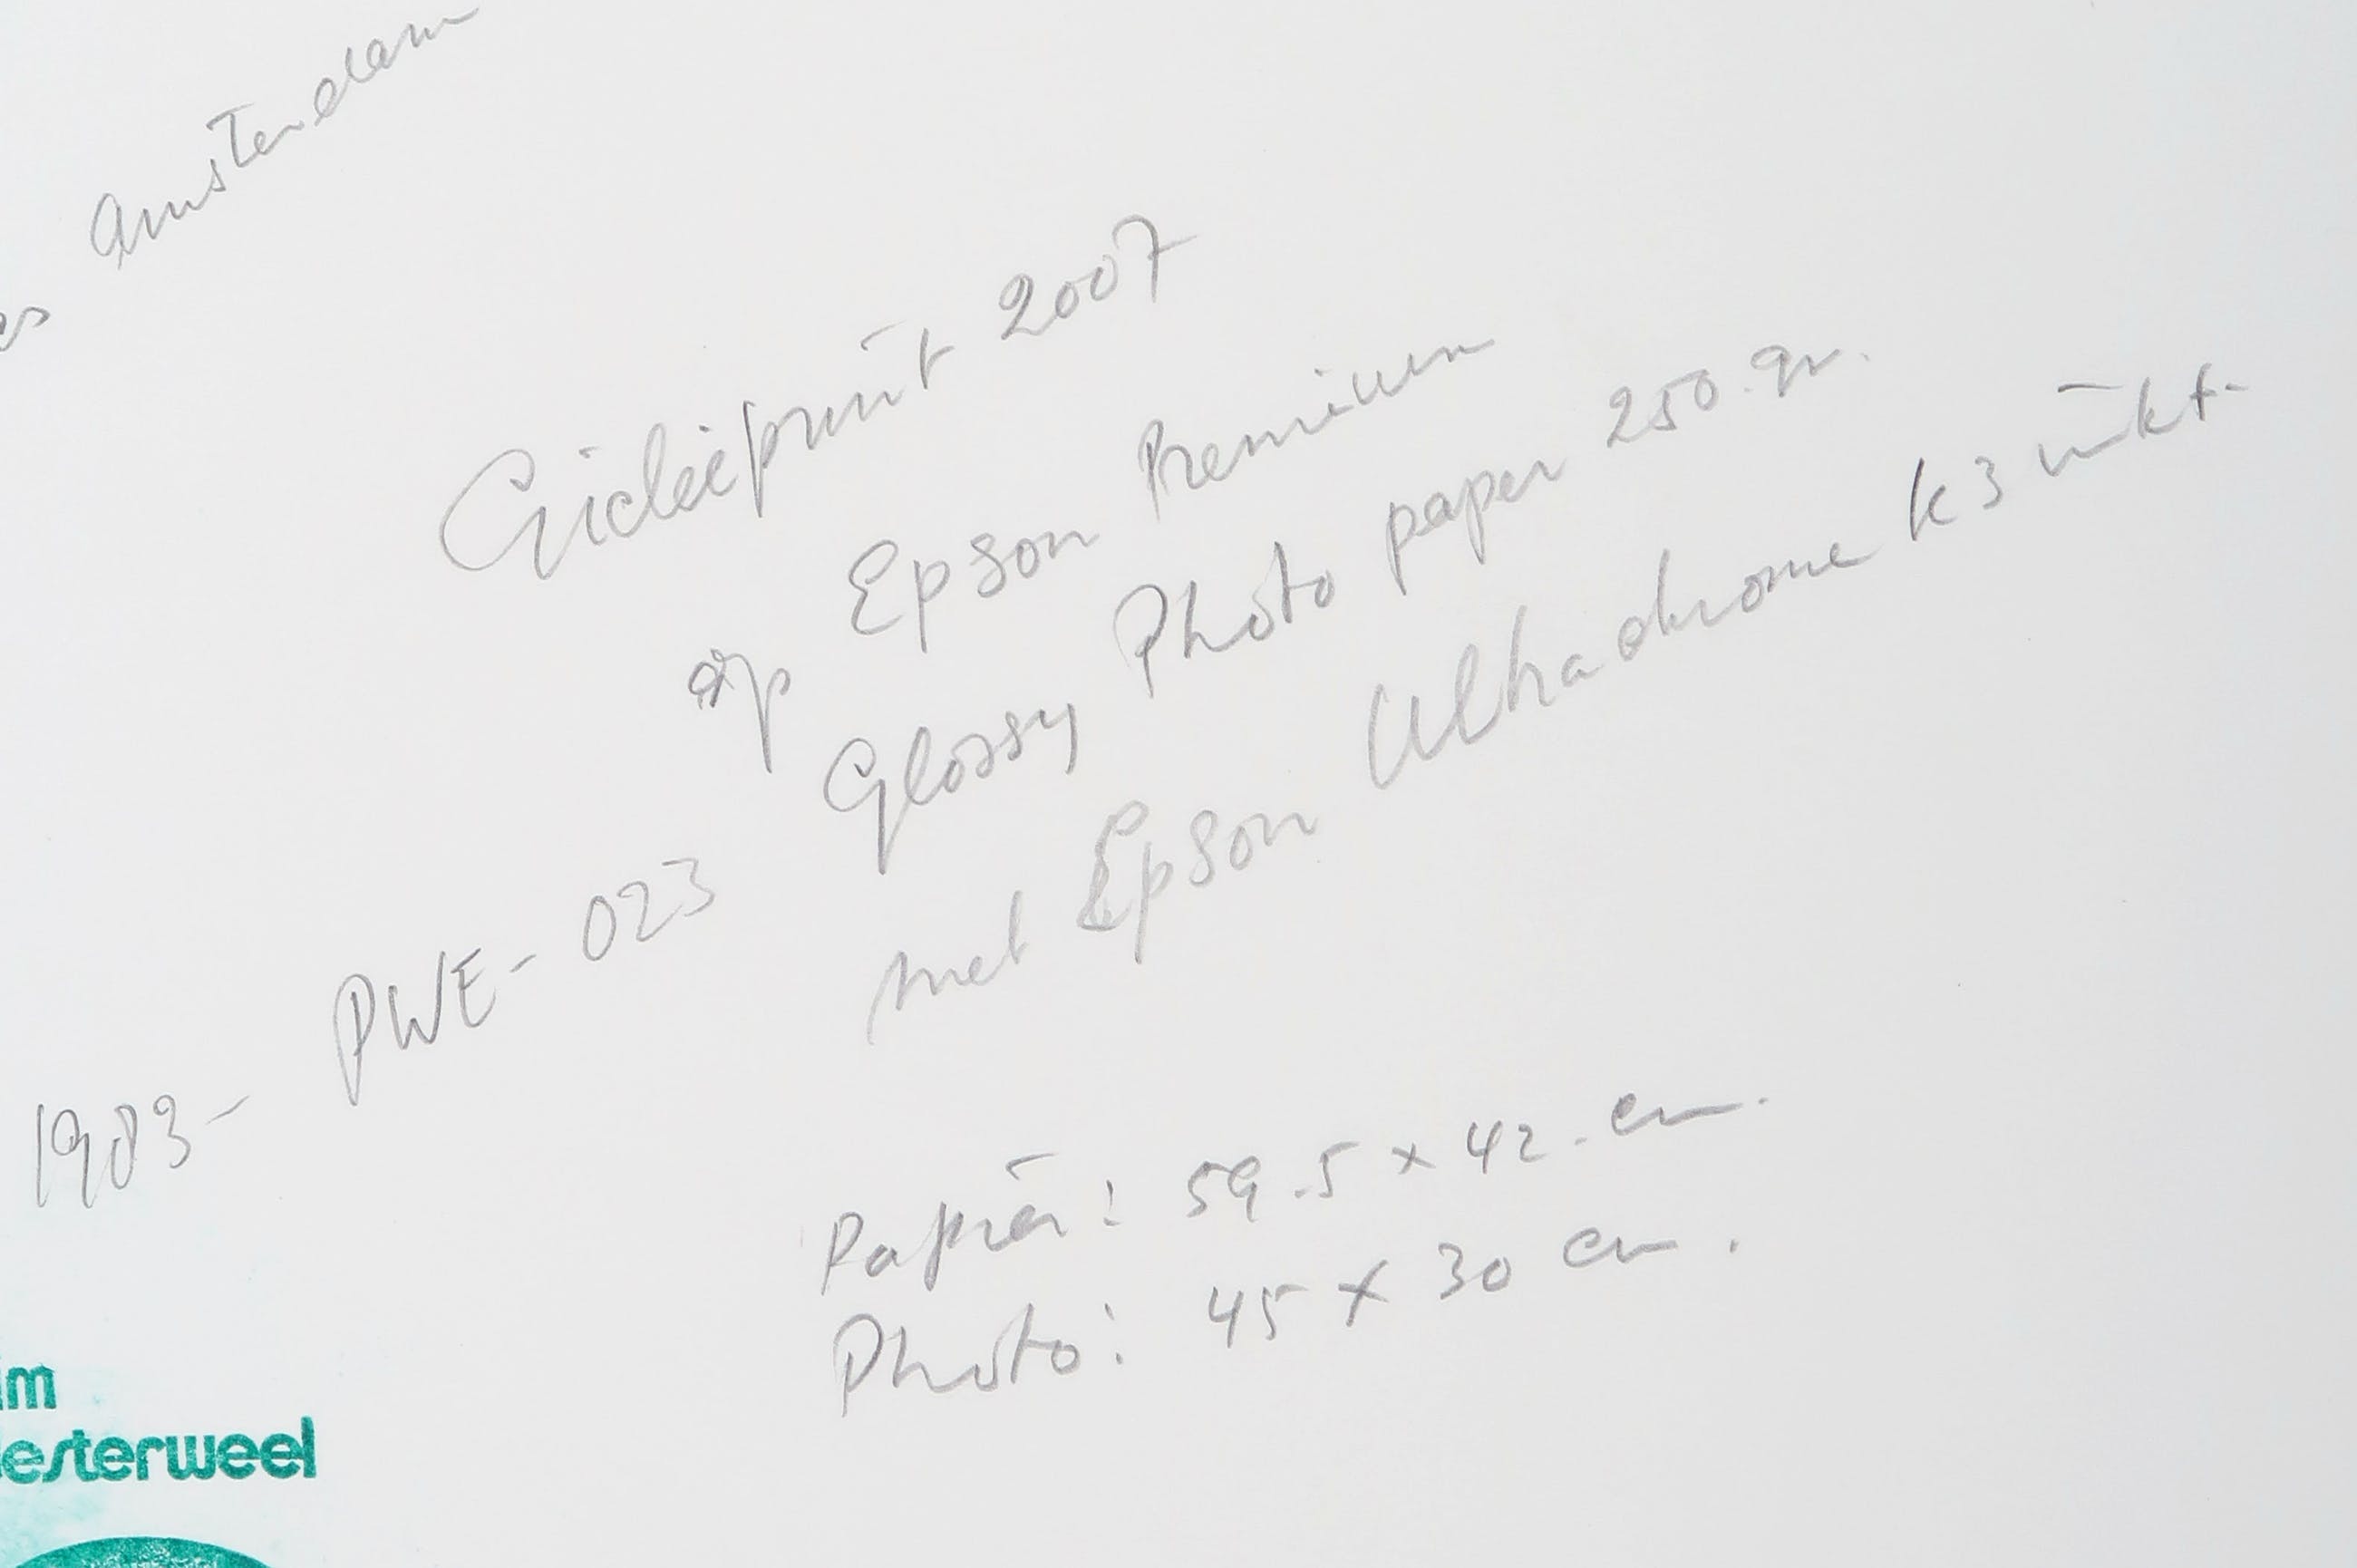 Amsterdam
es
Gicléeprint 2007
op Epson Premium
Glossy Photo paper 250. gr.
met Epson Ultrachrome K3 inkt.
1983- PWE- 023
Papier: 59.5 x 42. cm.
Photo: 45 x 30 cm.
im
esterweel